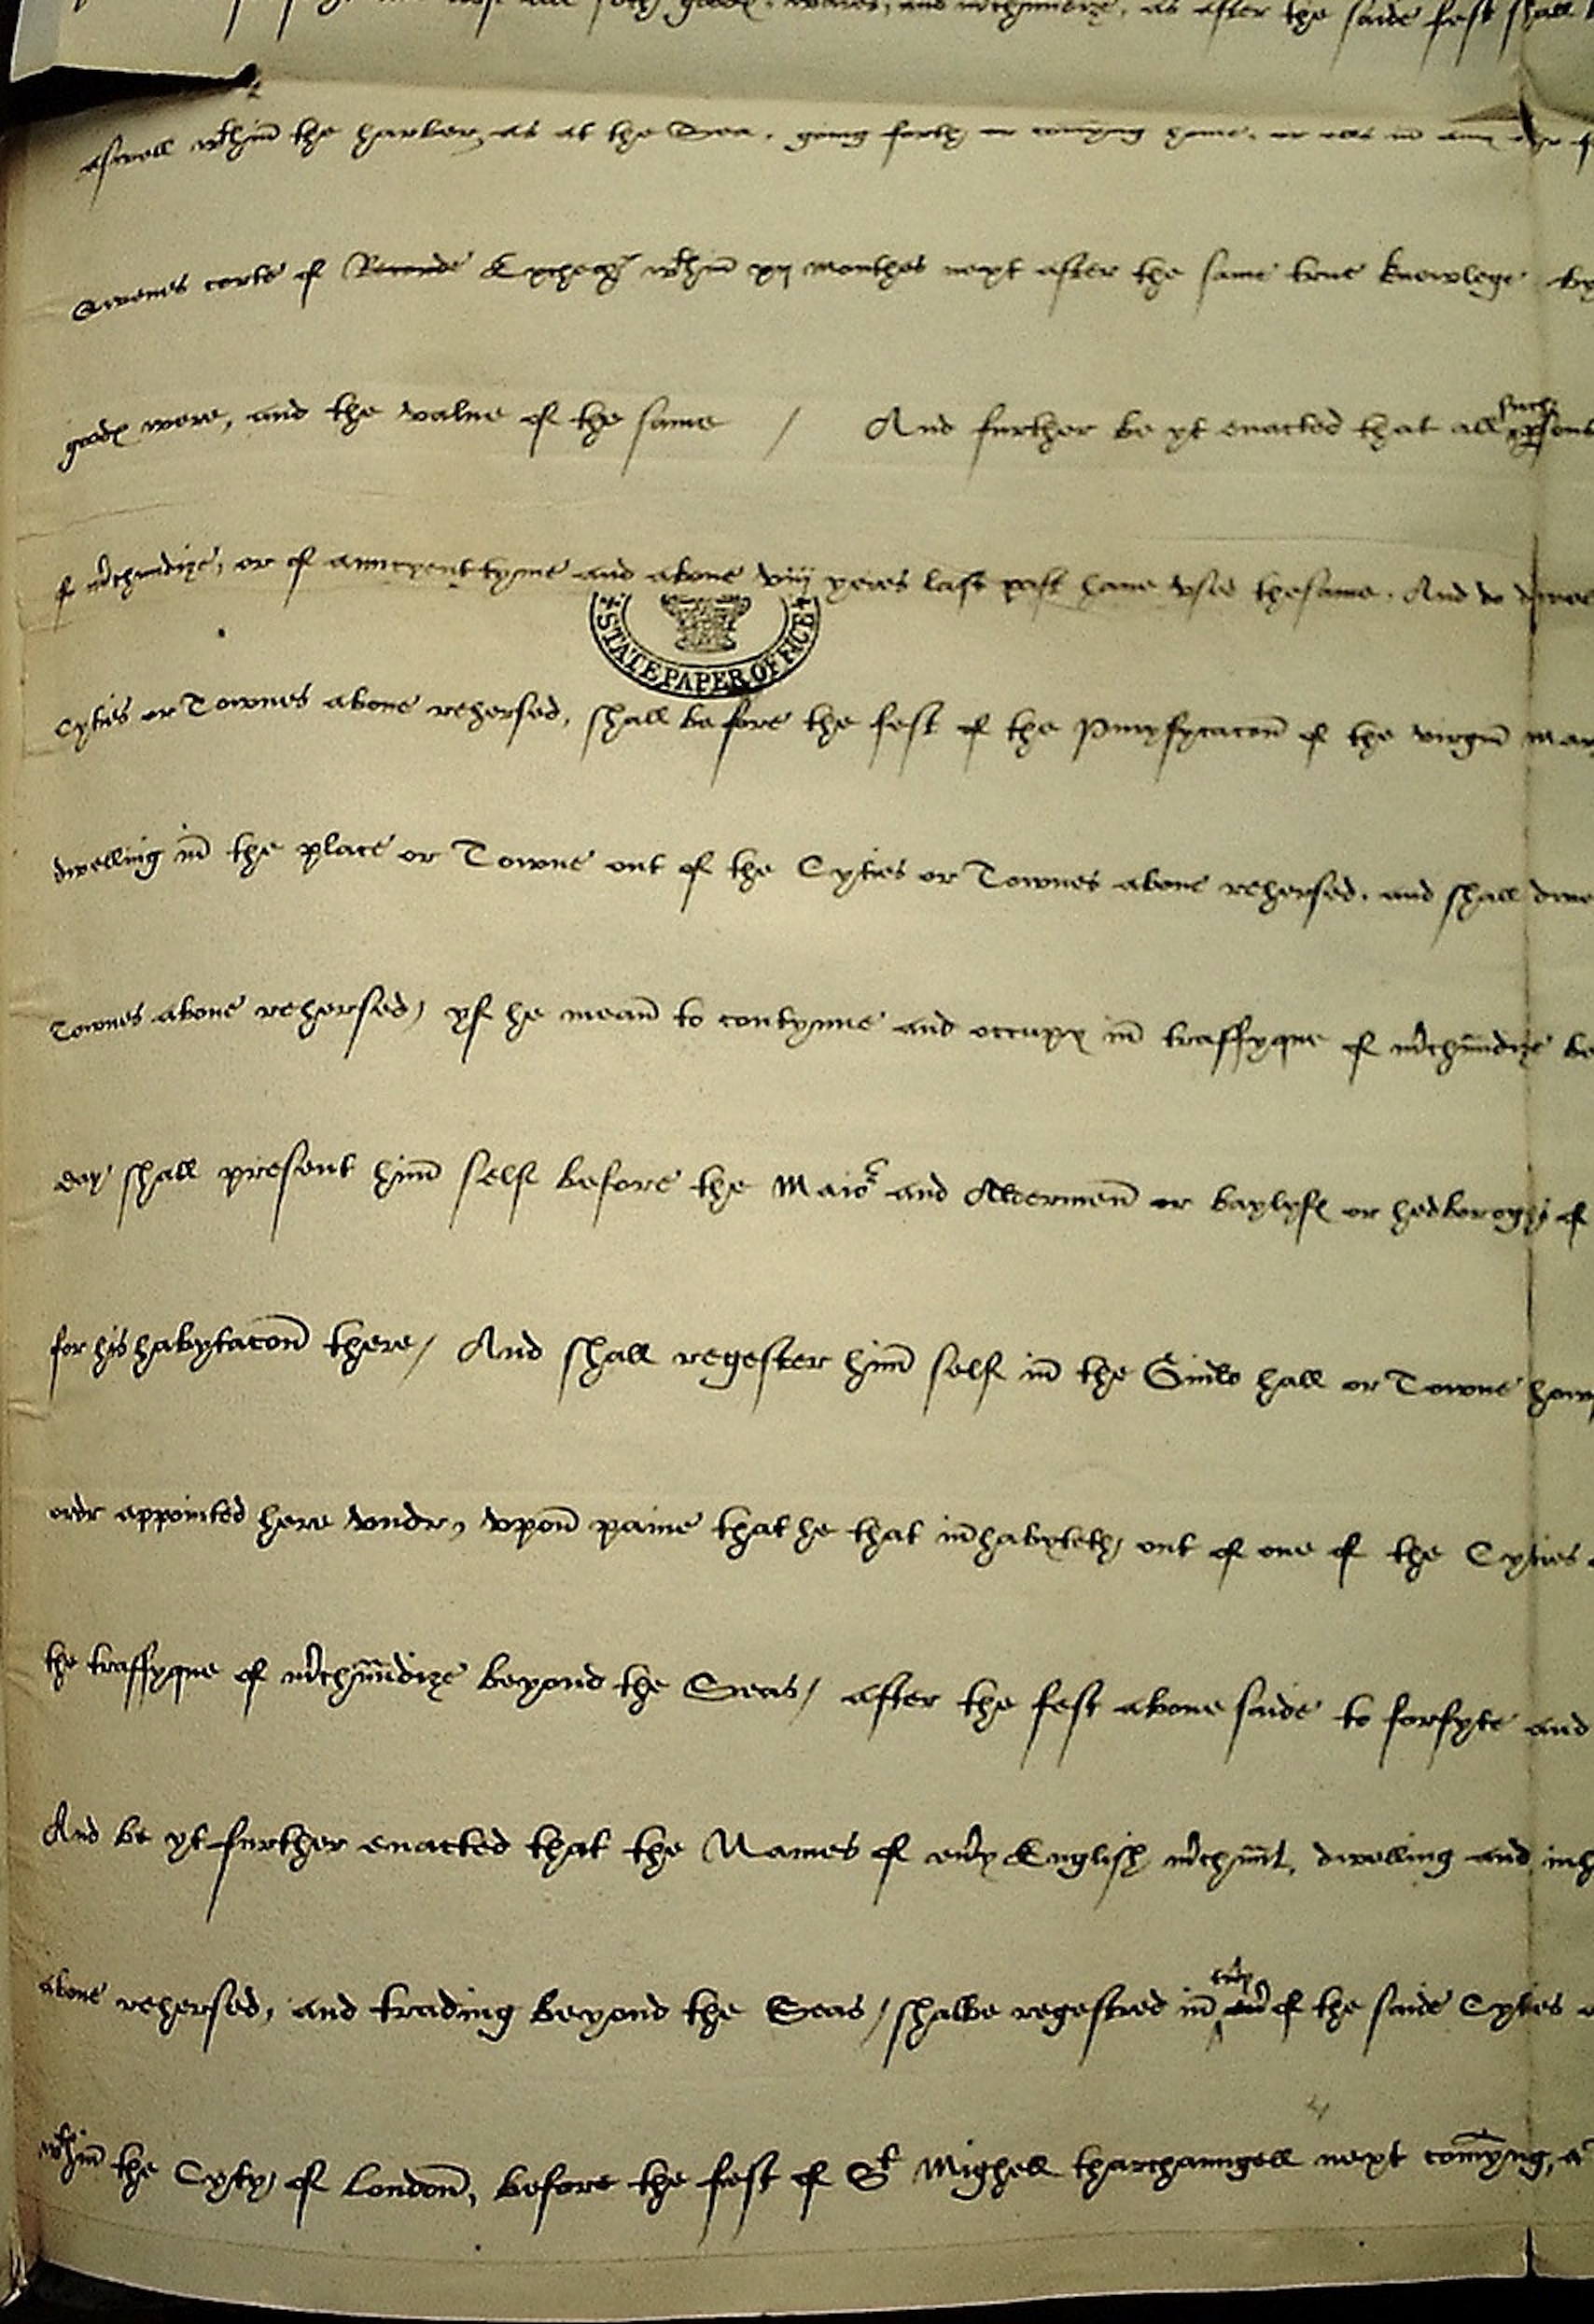 goodes, wares, and m'chaundize, as after the saide fest shall
aswell wthin the harber as at the Sea, going forth or comyng home, or els in any
Qwenes corte of Recorde Excheqr wthin xij monthes next after the same trne knowlege by
goodes were, and the value of the same / And further be yt enacted that all such persons
of m'chaundize, or of auncyent tyme and above viij yeres last past have vsed thesame. And do
STATE PAPER OFFICE
Cyties or Townes above rehersed, shall before the fest of the Puryfycacon of the virgin
dwelling in the place or Towne out of the Cyties or Townes above rehersed, and shall
Townes above rehersed, yf he mean to contynue and occupy in traffyque of m'chaundize
day shall present him self before the Maior and Aldermen or baylyfes or hedboroghs of
for his habytacon there, And shall regester him self in the Guild hall or Towne
ordr appointed here vndr, vpon paine that he that inhabyteth out of one of the Cyties
the traffyque of m'chaundize beyond the Seas, after the fest above saide to forfyte and
And be yt further enacted that the Names of eu'y English m'chaunt, dwelling and
above rehersed, and trading beyond the Seas, shalbe regestred in eu'y of the saide Cyties
wthin the Cyty of London, before the fest of St Mighell tharchaungell next comyng,